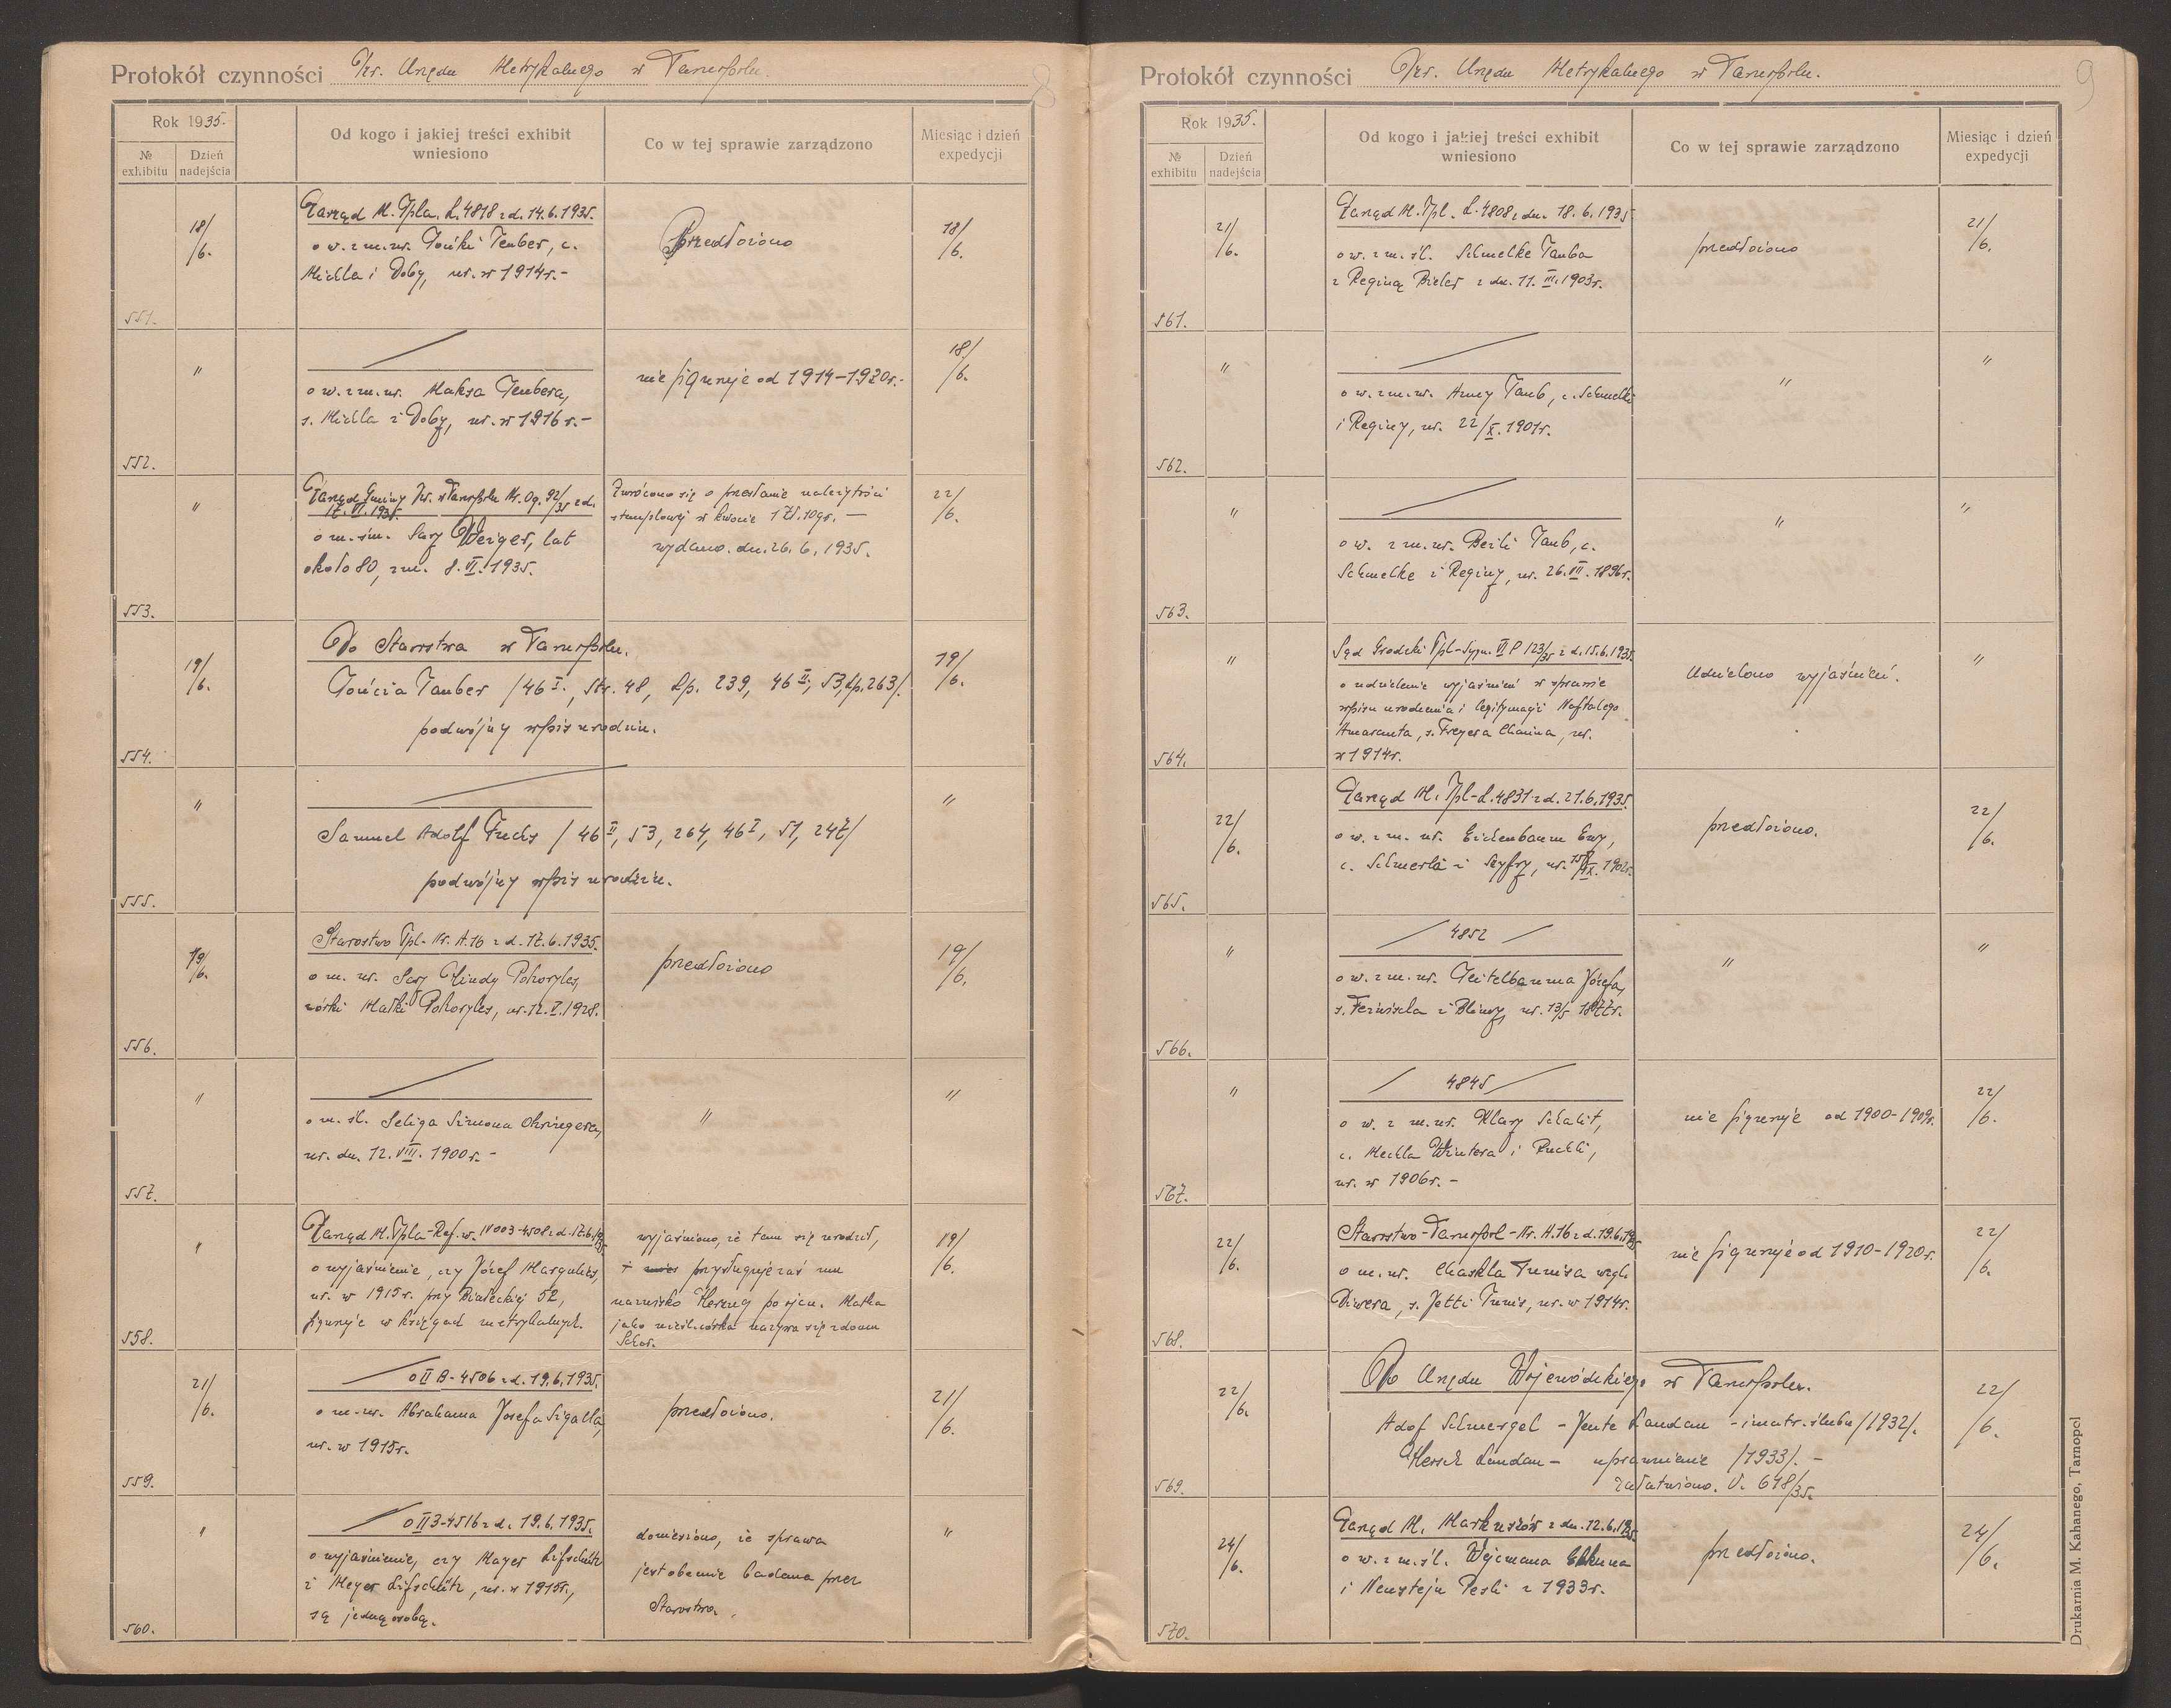 Protokół czynności Izr. Urzędu Metrykalnego w Tarnopolu.
8
Rok 1935.
№ exhibitu
Dzień nadejścia
Od kogo i jakiej treści exhibit wniesiono
Co w tej sprawie zarządzono
Miesiąc i dzień expedycji
551.
18/6.
Zarząd M. Tpla. L. 4818 z d. 14.6.1935.
o w. z m. ur. Teuber, c.
Michla i Doby, ur. w 1914 r. -
Przedłożono
18/6.
552.
"
o w. z m. ur. Maksa Teubera,
s. Michla i Doby, ur. w 1916 r. -
nie figuruje od 1914-1920 r. -
18/6.
553.
"
Zarząd Gminy w Tarnopolu Nr. Og. 92/35 z d.
17.VI.1935.
o m. śm. Sary Weiger, lat
około 80, zm. 8.VI.1935.
Zwrócono się o przesłanie należytości
stemplowej w kwocie 1 Zł. 10 gr. -
wydano dn. 26.6.1935.
22/6.
554.
19/6.
Do Starostwa w Tarnopolu.
Tońcia Tauber /46 I., str. 48, Lp. 239, 46 II, 53, Lp. 263/.
podwójny wpis urodzin.
19/6.
555.
"
Samuel Adolf Fuchs /46 II, 53, 264, 46 I, 51, 247/
podwójny wpis urodzin.
"
556.
19/6.
Starostwo Tpl - Nr. A.16 z d. 17.6.1935.
o m. ur. Sary Hindy Pohoryles,
córki Małki Pohoryles, ur. 12.V.1928.
przedłożono
19/6.
557.
"
o m. śl. Seliga Simona
ur. dn. 12.VIII.1900 r. -
"
"
558.
"
Zarząd M. Tpla - Ref. w. IV 003-4508 z d. 17.6.1935
o wyjaśnienie, czy Józef Margulies,
ur. w 1915 r. przy Białeckiej 52,
figuruje w księgach metrykalnych.
wyjaśniono, że tam się urodził,
przysługuje zaś mu
nazwisko Herzog po ojcu. Matka
jako nieśl. córka nazywa się z domu
Schor.
19/6.
559.
21/6.
O II B - 4506 z d. 19.6.1935.
o m. ur. Abrahama Josefa Sigalla,
ur. w 1915 r.
przedłożono.
21/6.
560.
"
O II 3-4516 z d. 19.6.1935.
o wyjaśnienie, czy Mayer Lifschütz
i Meyer Lifschütz, ur. w 1915 r.,
są jedną osobą.
doniesiono, że sprawa
jest obecnie badana przez
Starostwo.
"
Protokół czynności Izr. Urzędu Metrykalnego w Tarnopolu.
9
Rok 1935.
№ exhibitu
Dzień nadejścia
Od kogo i jakiej treści exhibit wniesiono
Co w tej sprawie zarządzono
Miesiąc i dzień expedycji
561.
21/6.
Zarząd M. Tpl. L. 4808 z dn. 18.6.1935
o w. z m. śl. Schmelke Tauba
z Reginą Bieler z dn. 11.III.1903 r.
przedłożono
21/6.
562.
"
o w. z m. ur. Anny Taub, c. Schmelki
i Reginy, ur. 22/X.1901 r.
"
"
563.
"
o w. z m. ur. Berli Taub, c.
Schmelke i Reginy, ur. 26.VII.1896 r.
"
"
564.
"
Sąd Grodzki Tpl - Sygn. VI P 123/35 z d. 15.6.1935.
o udzielenie wyjaśnień w sprawie
wpisu urodzenia i legitymacji Naftalego
Amaranta, s. Freyera Chaima, ur.
w 1914 r.
Udzielono wyjaśnień.
"
565.
22/6.
Zarząd M. Tpl - L. 4831 z d. 21.6.1935.
o w. z m. ur. Eichenbaum Ewy,
c. Schmerla i Szyfry, ur. 15/IX.1902 r.
przedłożono.
22/6.
566.
"
4852
o w. z m. ur. Teitelbauma Józefa,
s. Feiwischa i Bliny, ur. 13/5 1877 r.
"
"
567.
"
4845
o w. z m. ur. Klary Schalit,
c. Mechla Wintera i Ruchli,
ur. w 1906 r. -
nie figuruje od 1900-1909 r.
22/6.
568.
22/6.
Starostwo - Tarnopol - Nr. A.16 z d. 19.6.1935
o m. ur. Chaskla Tunisa wzgl.
Diwera, s. Jetti Tunis, ur. w 1914 r.
nie figuruje od 1910-1920 r.
22/6.
569.
22/6.
Do Urzędu Wojewódzkiego w Tarnopolu.
Adof Schmergel - Jente Landau - imatr. ślubu /1932/.
Hersch Landau - uprawnienie /1933/. -
załatwiono. V. 618/35.
22/6.
570.
24/6.
Zarząd M. Markuszów z dn. 12.6.1935.
o w. z m. śl. Wajcmana Elkuna
i Neustejn Pesli z 1933 r.
przedłożono.
24/6.
Drukarnia M. Kahanego, Tarnopol